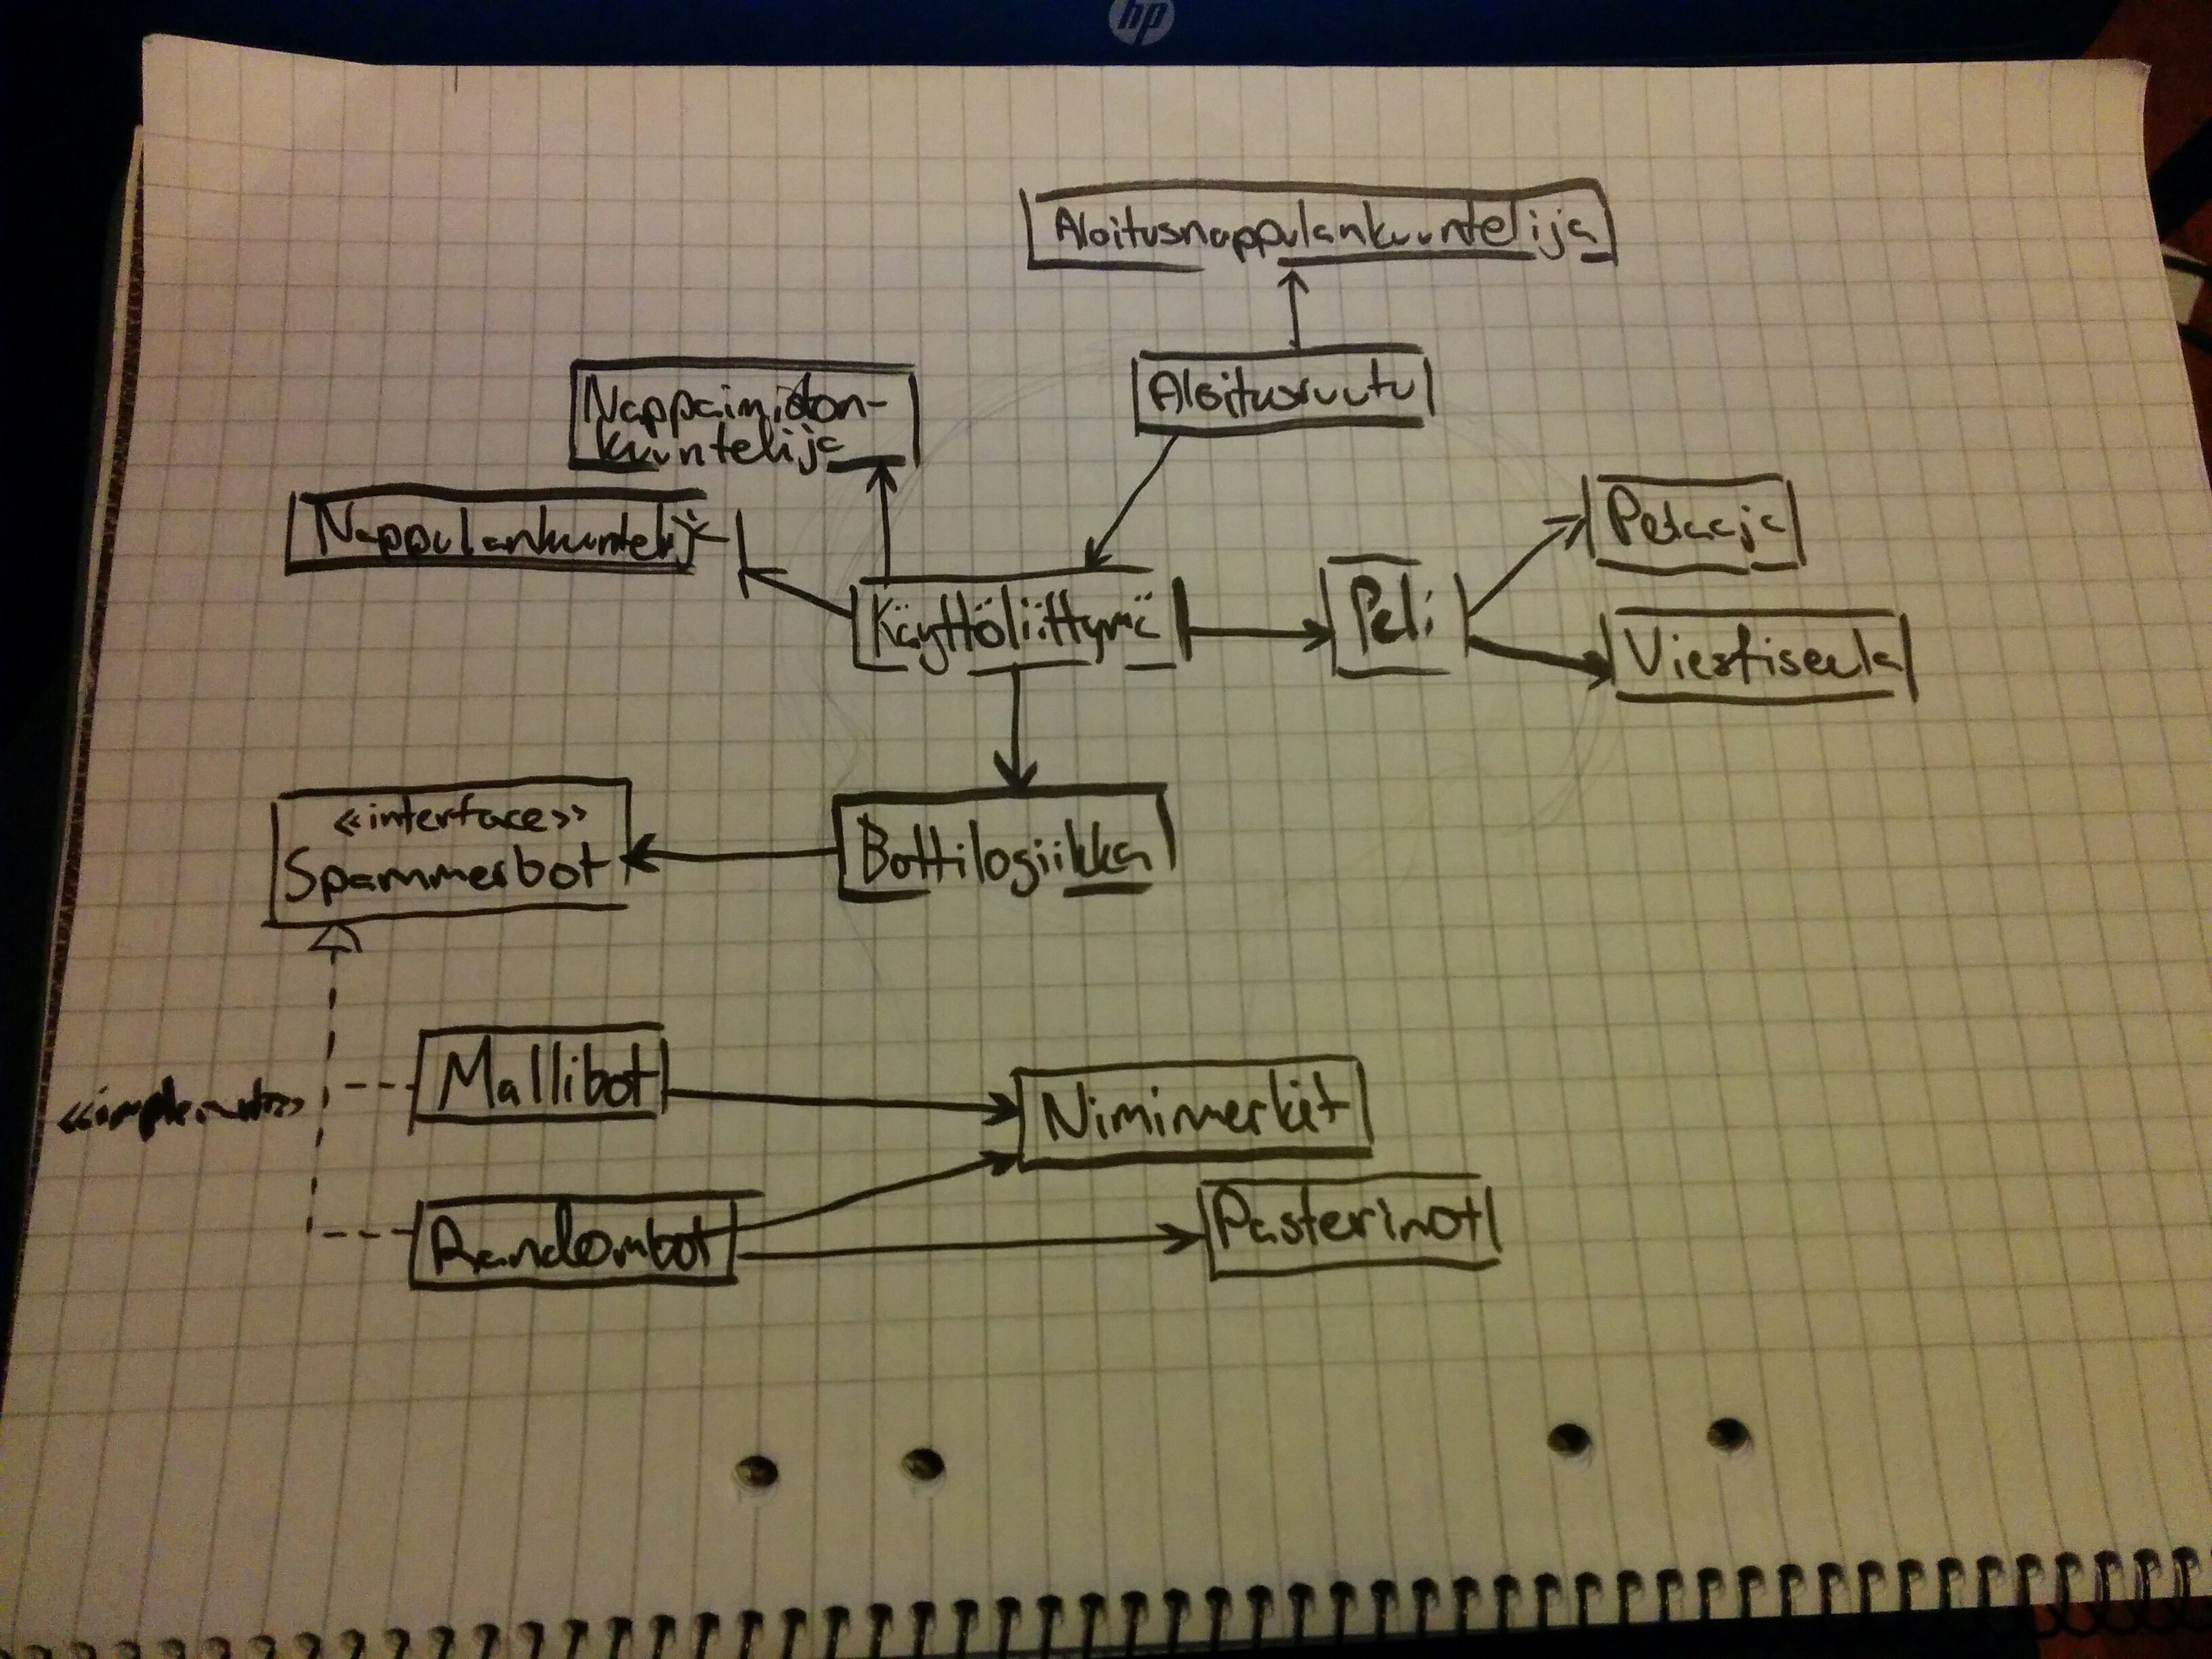 hp
Aloitusnappulankuuntelija
Aloitusruutu
Nappaimiston-
kuuntelija
Nappulankuuntelij
Pelaaja
Käyttöliittymä
Peli
Viestiseula
<<interface>>
Spammerbot
Bottilogiikka
Mallibot
<<implements>>
Nimimerkit
Randombot
Pasterinot